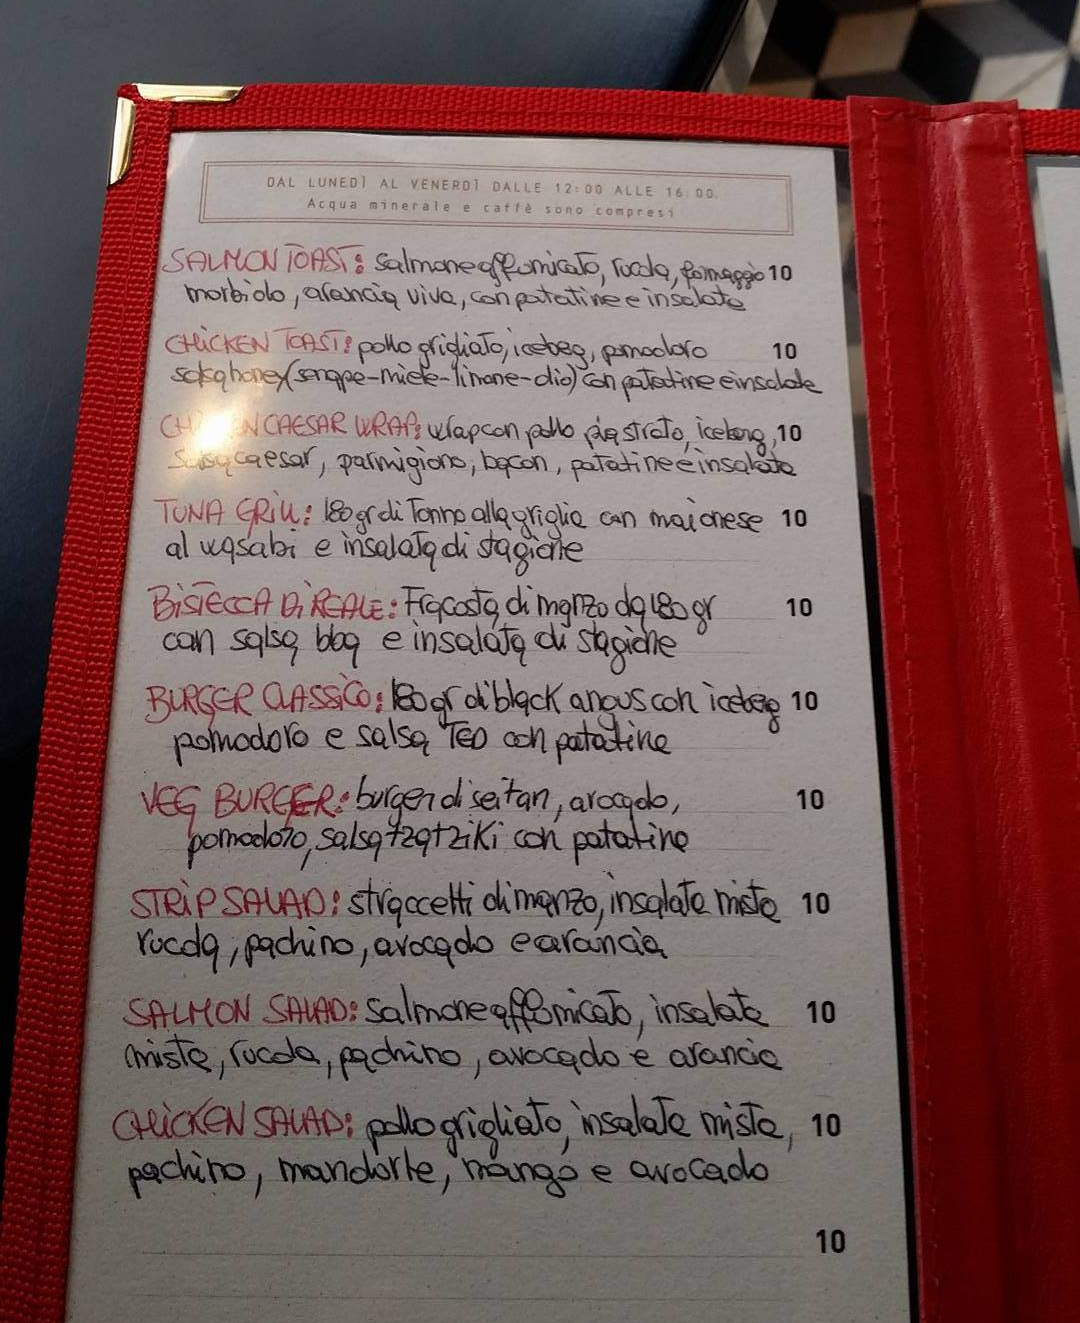 DAL LUNEDÌ AL VENERDÌ DALLE 12:00 ALLE 16:00.
Acqua minerale e caffè sono compresi
SALMON TOAST: salmone affumicato, rucola, formaggio 10
morbido, arancia viva, con patatine e insalata
CHICKEN TOAST: pollo grigliato, iceberg, pomodoro 10
salsa honey (senape-miele-limone-olio) con patatine e insalata
CHICKEN CAESAR WRAP: wrap con pollo piastrato, iceberg, 10
salsa caesar, parmigiano, bacon, patatine e insalata
TUNA GRILL: 180 gr di Tonno alla griglia con maionese 10
al wasabi e insalata di stagione
BISTECCA DI REALE: Fracosta di manzo da 180 gr 10
con salsa bbq e insalata di stagione
BURGER CLASSICO: 180 gr di black angus con iceberg 10
pomodoro e salsa TEO con patatine
VEG BURGER: burger di seitan, avocado, 10
pomodoro, salsa tzatziki con patatine
STRIP SALAD: straccetti di manzo, insalata mista 10
rucola, pachino, avocado e arancia
SALMON SALAD: salmone affumicato, insalata 10
mista, rucola, pachino, avocado e arancia
CHICKEN SALAD: pollo grigliato, insalata mista, 10
pachino, mandorle, mango e avocado
10